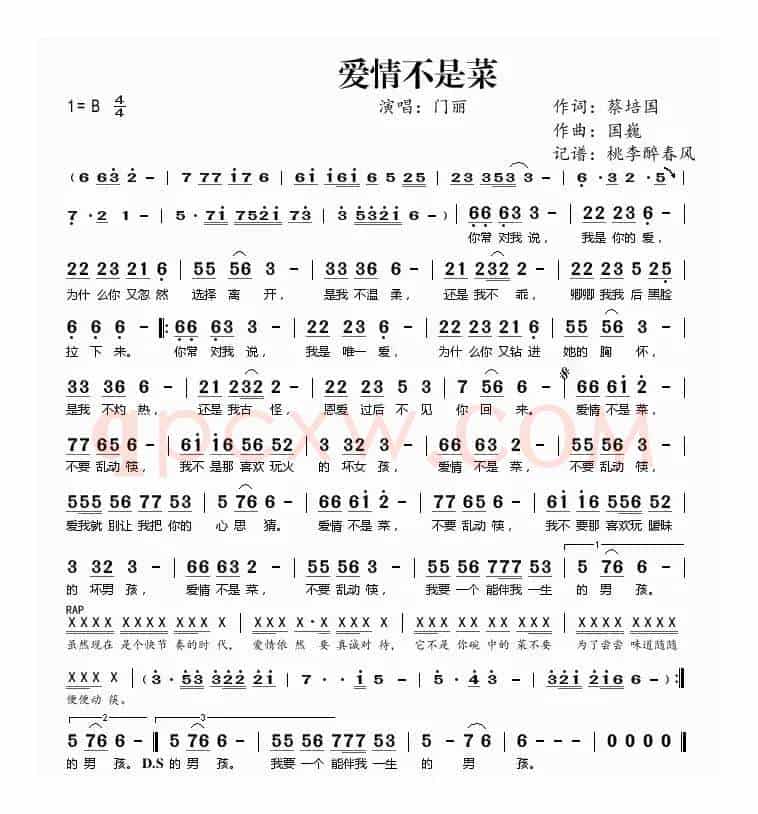 爱情不是菜
1=B 4/4 演唱：门丽 作词：蔡培国
作曲：国巍
记谱：桃李醉春风
(6 63 2 - | 7 77 17 6 | 61 16 5 25 | 23 353 3 - | 6 · 3 2 · 5
7 · 2 1 - | 5 · 71 7521 73 | 3 5321 6 -) | 66 63 3 - | 22 23 6 - |
你常 对我 说， 我是 你的 爱，
22 23 21 6 | 55 56 3 - | 33 36 6 - | 21 232 2 - | 22 23 5 25 |
为什 么你 又忽 然 选择 离 开， 是我 不温 柔， 还是 我不 乖， 卿卿 我我 后 黑脸
6 6 6 - |: 66 63 3 - | 22 23 6 - | 22 23 21 6 | 55 56 3 - |
拉 下 来。 你常 对我 说， 我是 唯一 爱， 为什 么你 又钻 进 她的 胸 怀，
33 36 6 - | 21 232 2 - | 22 23 5 3 | 7 56 6 - | 66 61 2 - |
是我 不灼 热， 还是 我古 怪， 恩爱 过后 不 见 你 回 来。 爱情 不是 菜，
77 65 6 - | 61 16 56 52 | 3 32 3 - | 66 63 3 - | 55 65 6 - |
不要 乱动 筷， 我不 是那 喜欢 玩火 的 坏女 孩， 爱情 不是 菜， 不要 乱动 筷，
555 56 77 53 | 5 76 6 - | 66 61 2 - | 77 65 6 - | 61 16 556 52 |
爱我就 别让 我把 你的 心 思 猜。 爱情 不是 菜， 不要 乱动 筷， 我不 要那 喜欢玩 暧昧
3 32 3 - | 66 63 3 - | 22 23 6 - | 55 56 777 53 | 1 5 76 6 - |
的 坏男 孩， 爱情 不是 菜， 不要 乱动 筷， 我要 一个 能伴我 一生 的 男 孩。
RAP
XXXX XXXX XXX X | XXX X·X XXX X | XXXX XXXX XXXX | XXXX XXXX
虽然现在 是个快节 奏的时 代。 爱情依 然 要 真诚对 待， 它不是 你碗 中的 菜不要 为了尝尝 味道随随
XXX X | (3·5 53 3221 2 | 1 76 7 · 2 15 | 5 · 43 · 2 | 3221 22 -) :|
便便动 筷。
2 3
5 76 6 - | 5 76 6 - | 55 56 777 53 | 5 - 7 6 | 6 - - - | 0 0 0 0 |
的 男 孩。 D.S 的 男 孩。 我要 一个 能伴我 一生 的 男 孩。
qpcxw.COM